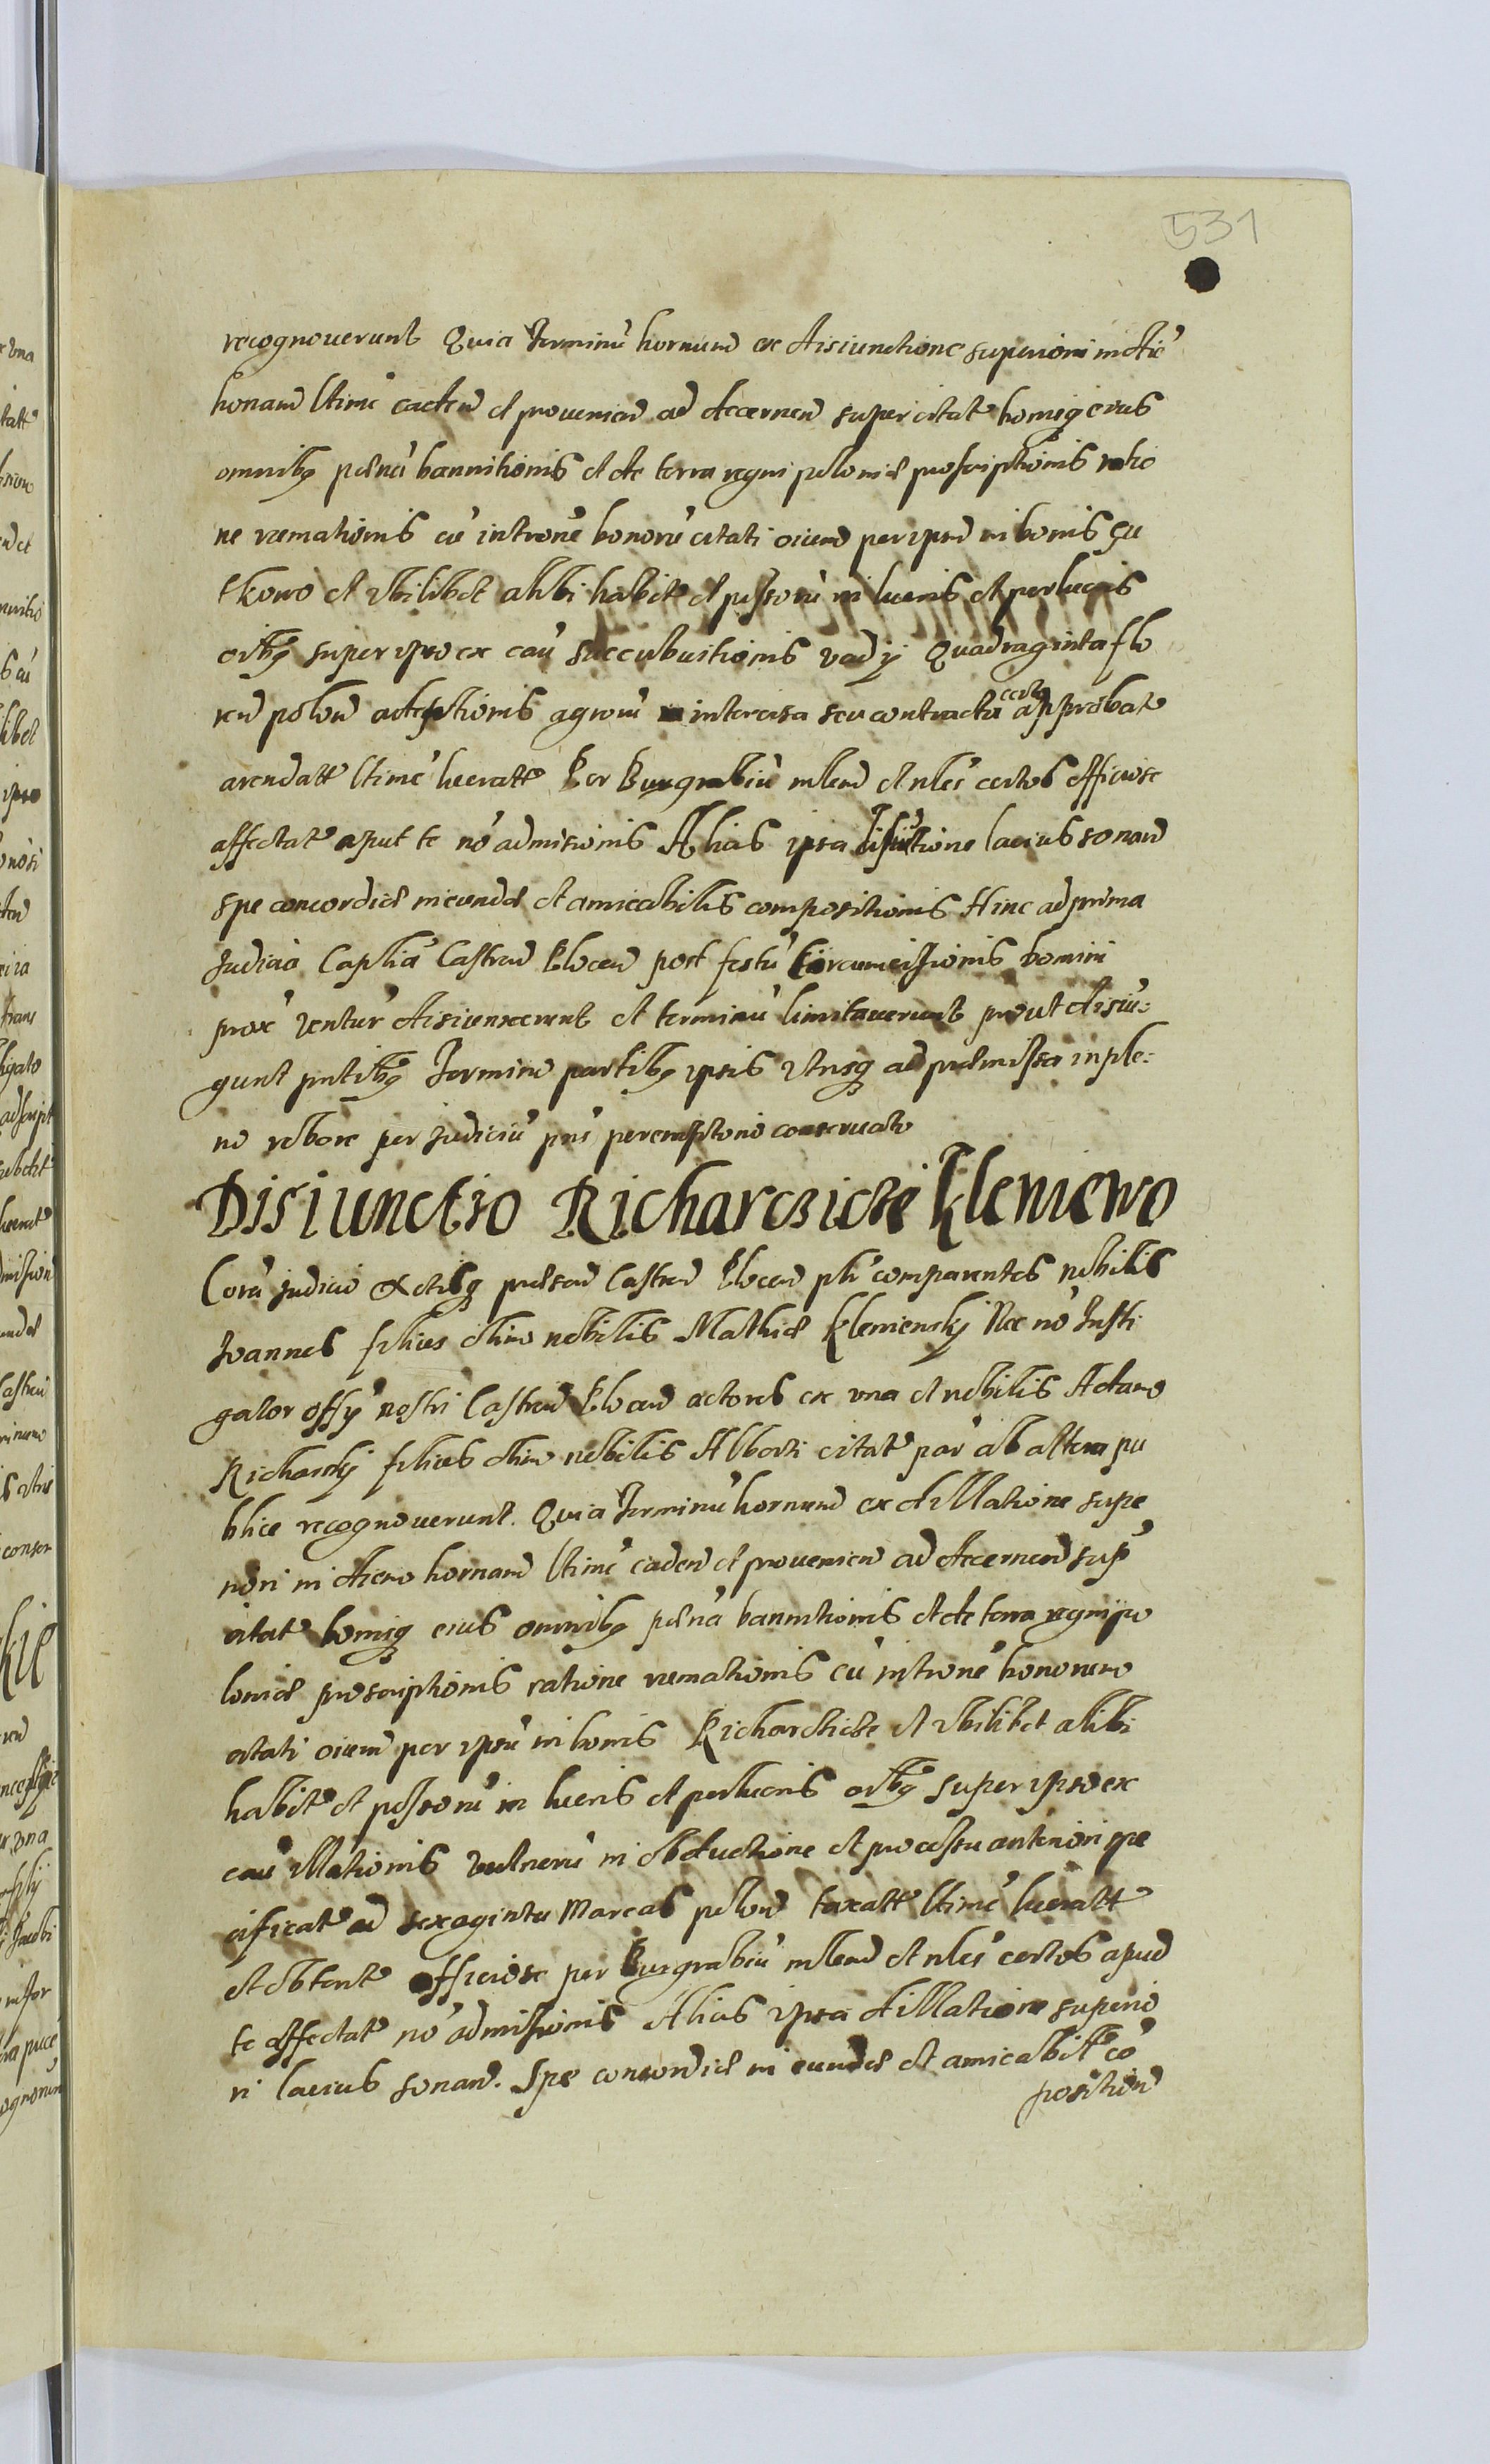 531
recognoverunt Quia Terminū hornum ex disiunctione superiori in die
honand ltime caden et provenien ad decernen super citat bonisq eius
omnibq pena bannitionis et de terra regni polonie proscriptionis ratio
ne remationis cū introne bonorū citati oium per ipsm in bonis Su
et vbilibet alibi habit et possorū in lucris et perlucris
oibq super ipso ex cau succubuitionis vadij Quadraginta flo
ren polon ademptionis agrorū intercisa seu contractu certo approbat
arendatt ltime lucratt Per Burgrabiū et nles certos officiose
affectat aput te nō admisionis Alias ipsa disiūctione lacius sonan
spe concordie ineunde et amicabilis compositionis Hinc ad prima
Judicia Caplia Castren Ploceñ post festū Circumcisionis Domini
prox ventur disiunxerunt et terminū limitaverunt prout disiū:
gunt pntibq Termino partibq ipsis vtrisq ad premissa in ple:
no robore per Judiciū pns peremptorie conservato
Disiunctio Richarczickie Kleniewo
Corā Judicio Actisq presen Castren Plocen plr comparentes nobilis
Joannes filius olim nobilis Mathie Klenienskj Nec nō Insti
gator offy nostri Castren Plocen actores ex vna et nobilis Adam
Richarskj filius olim nobilis Alberti citat par ab altera pu
blice recognoverunt. Quia Terminū hornum ex dillatione supe
riori in diem hornam ltime caden et provenien ad decernen sup
citat bonisq eius omnibq pena bannitionis et de terra regni po
lonie proscriptionis ratione remationis cū introne bonorum
citati oium per ipsū in bonis Richarcticze et vbilibet alibi
habit et possorū in lucris et perlucris oibq super ipso ex
cau illationis vulnerū in obductione et processu anteriori spe
cificat ad sexaginta Marcas polon taxatt ltime lucratt
et obtent officiose per Burgrabiū et nles certos apud
te affectat nō admissionis Alias ipsa dillatione superio
ri lacius sonan. Spe concordie in eunde et amicabil cō
position